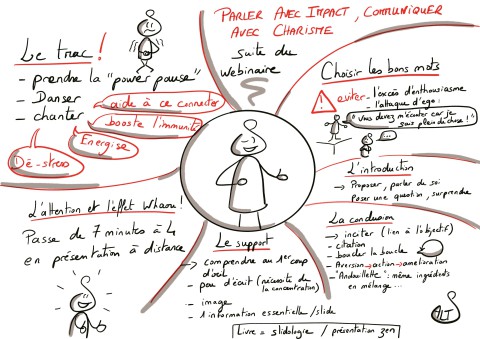 PARLER AVEC IMPACT, COMMUNIQUER
AVEC CHARISME
suite du
webinaire
Le trac !
- prendre la "power pause"
- Danser
- chanter
aide à se connecter
booste l'immunité
Energise
Dé-stress
Choisir les bons mots
! eviter - l'excès d'enthousiasme
- l'attaque d'ego :
"Vous devez m'écouter car je
suis plein de chose !"
...
L'introduction
→ Proposer, parler de soi
Poser une question, surprendre
La conclusion
→ inciter (lien à l'objectif)
- citation
- boucler la boucle
- Aversion → action → amélioration
- "Andouillette" : même ingrédients
en mélange...
L'attention et l'effet Whaou !
Passe de 7 minutes à 4
en présentation à distance
Le support
→ comprendre au 1er coup
d'œil
- peu d'écrit (nécessite de
la concentration)
- image
- 1 information essentielle / slide
Livre = slidologie / présentation zen